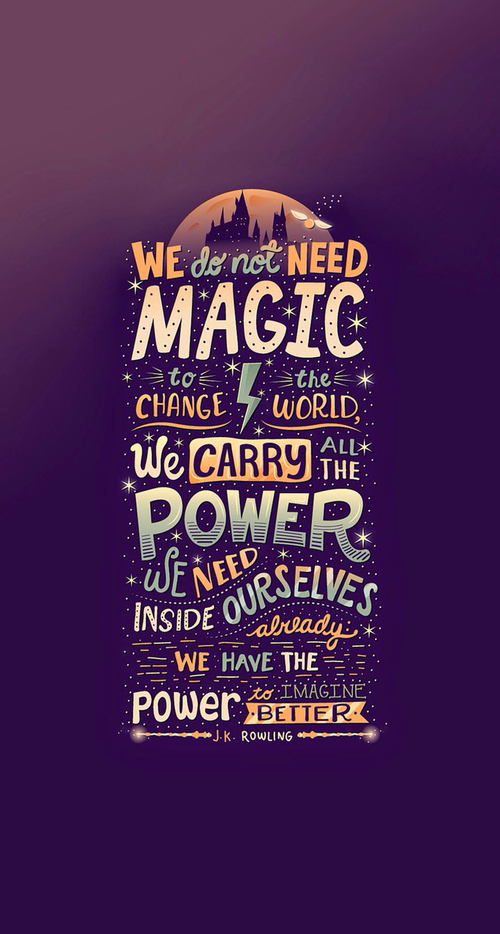 WE do not NEED
MAGIC
to the
CHANGE WORLD,
We CARRY ALL THE
POWER
WE NEED
INSIDE OURSELVES
already
WE HAVE THE
power to IMAGINE
BETTER
J.K. ROWLING